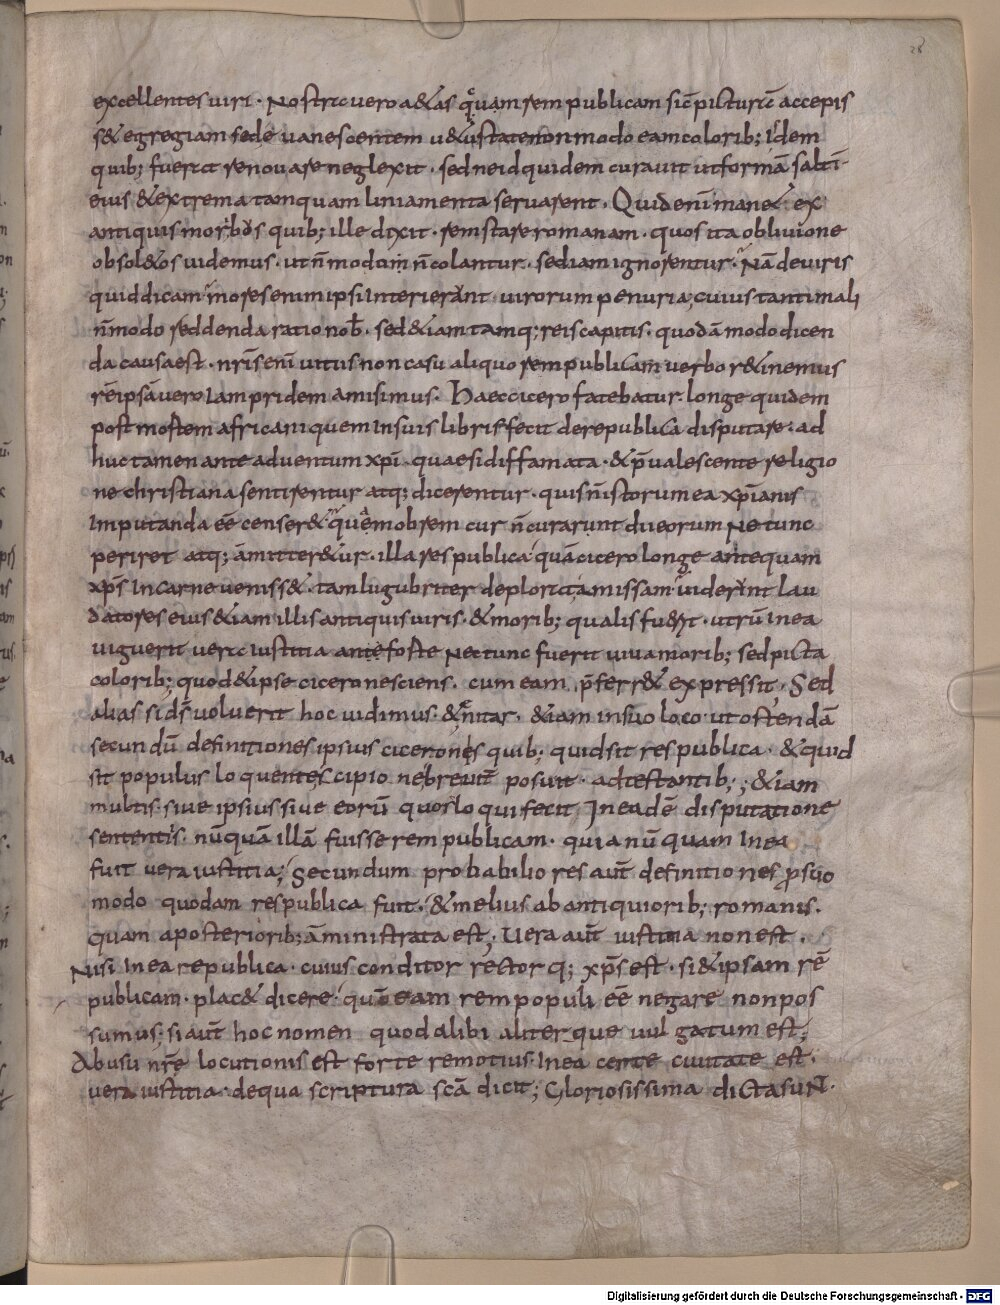 28
excellentes uiri · Nostra uero a&as qu̅am rem publicam sic̅ pictura̅ accepis
s& egregiam sede uanescentem u&ustate non modo eam colorib; isdem
quib; fuerat renouare neglexit · sed ne id quidem curauit ut forma̅ salti̅
eius & extrema tamquam liniamenta seruarent · Quid eni̅ man& ex
antiquis morib; quib; ille dixit · rem stare romanam · quos ita obliuione
obsol&os uidemus · ut n̅ modo n̅ colantur · sed iam ignorentur · Na̅ de uiris
quid dicam mores enim ipsi interierunt · uirorum penuria, cuius tanti mali
n̅ modo reddenda ratio nob̅ · sed &iam tamq; reis capitis · quoda̅ modo dicen
da causa est · nr̅is eni̅ uitiis non casu aliquo rem publicam uerbo r&inemus
re̅ ipsa̅ uero iam pridem amisimus · Haec cicero fatebatur · longe quidem
post mortem africani quem in suis libris fecit de re publica disputare · ad
huc tamen ante aduentum xp̅i · quae si diffamata · & p̅ualescente religio
ne christiana sentirentur atq; dicerentur · quis n̅ istorum ea xp̅ianis
imputanda ee̅ censer& quam obrem cur n̅ curarunt dii eorum Ne tunc
periret atq; amitter&ur · illa res publica qua̅ cicero longe antequam
xp̅s in carne ueniss& · tam lugubriter deplorat amissam uiderint lau
datores eius &iam illis antiquis uiris · & morib; qualis fuerit · utru̅ in ea
uiguerit uera iustitia an forte Nec tunc fuerit uiua morib; sed picta
colorib; quod & ipse cicero nesciens · cum eam p̅ferr& expressit · Sed
alias si ds̅ uoluerit hoc uidimus · &nitar · &iam in suo loco ut ostenda̅
secundu̅ definitiones ipsius ciceronis quib; quid sit res publica · & quid
sit populus loquente scipio breuit̅ posuit · adtestantib; ; &iam
multis siue ipsius siue eoru̅ quos loqui fecit in eade̅ disputatione
sententiis · nu̅qua̅ illa̅ fuisse rem publicam · quia nu̅quam in ea
fuit uera iustitia; Secundum probabiliores aut̅ definitiones p̱ suo
modo quodam res publica fuit · & melius ab antiquiorib; romanis ·
quam a posteriorib; aministrata est; Uera aut̅ iustitia non est ·
Nisi in ea republica · cuius conditor rectorq; xp̅s est · si & ipsam re̅
publicam · plac& dicere · qu̅o eam rem populi ee̅ negare non pos
sumus; si aut̅ hoc nomen quod alibi aliterque uulgatum est;
Ab usu nr̅e locutionis est forte remotius · In ea certe ciuitate est ·
uera iustitia · de qua scriptura sca̅ dicit; Gloriosissima dicta sunt ·
Digitalisierung gefördert durch die Deutsche Forschungsgemeinschaft - DFG